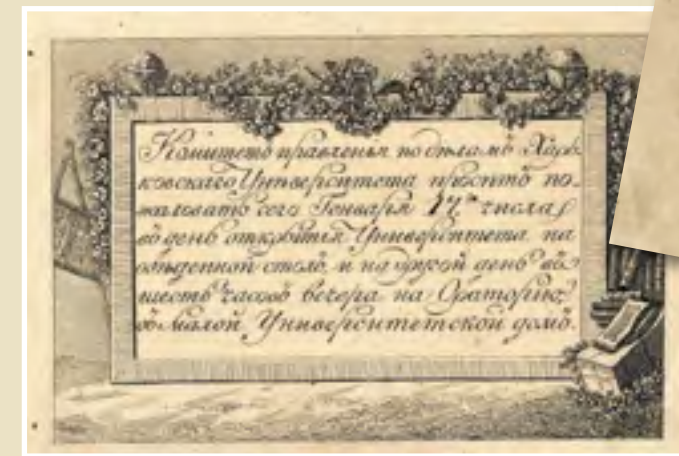 Комитетъ правленія по дѣламъ Харь-
ковскаго Университета проситъ по-
жаловать сего Генваря 17го числа
въ день открытія Университета на
обѣденной столъ, и на другой день въ
шесть часовъ вечера на Ораторію,
въ малой Университетской домъ.